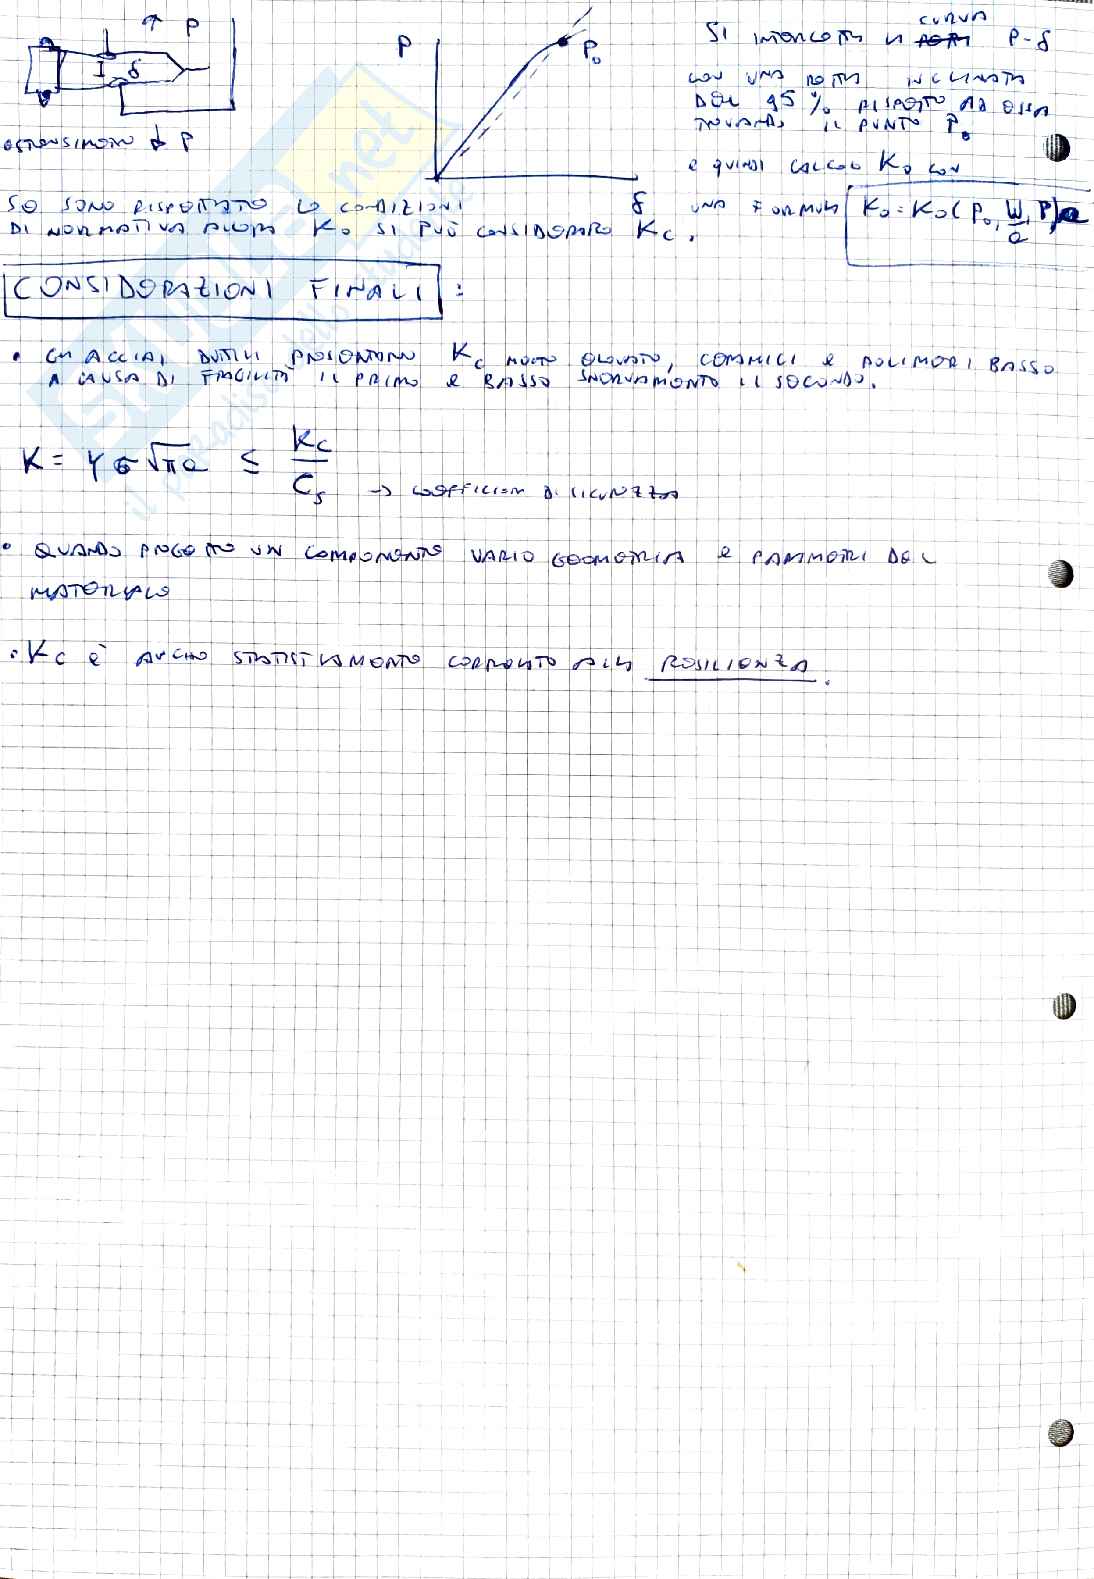 P
I δ
ESTENSIMETRO P
P
P₀
δ
SI INTERCETTA LA CURVA P-δ
CON UNA RETTA INCLINATA
DEL 95% RISPETTO AD ESSA
TROVANDO IL PUNTO P₀
E QUINDI CALCOLO K₀ CON
UNA FORMULA K₀ = K₀ (P₀, W/a, P)
SE SONO RISPETTATE LE CONDIZIONI
DI NORMATIVA ALLORA K₀ SI PUÒ CONSIDERARE Kc.
CONSIDERAZIONI FINALI:
• GLI ACCIAI DUTTILI PRESENTANO Kc MOLTO ELEVATO, CERAMICI E POLIMERI BASSO
A CAUSA DI FRAGILITÀ IL PRIMO E BASSO SNERVAMENTO IL SECONDO.
K = Yσ√πa ≤ Kc/Cs → COEFFICIENTE DI SICUREZZA
• QUANDO PROGETTO UN COMPONENTE VARIO GEOMETRIA E PARAMETRI DEL
MATERIALE
• Kc È ANCHE STATISTICAMENTE CORRELATO ALLA RESILIENZA.
SKUOLA.net
il paradiso dello studente